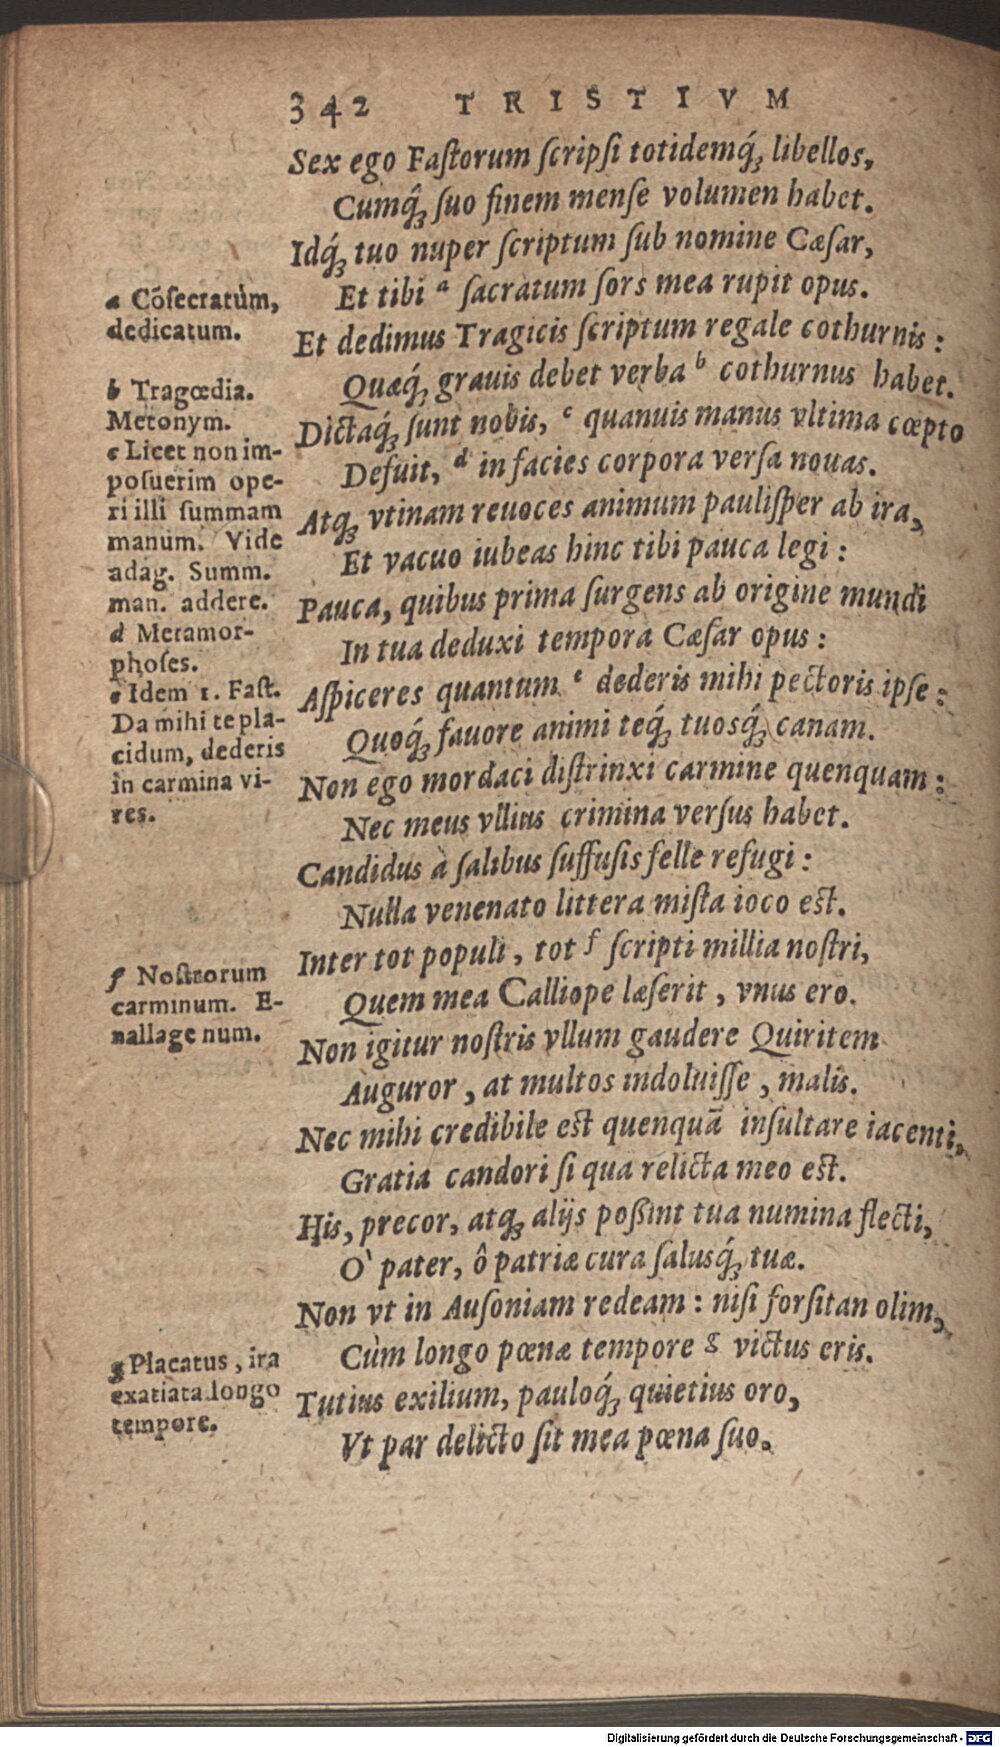 342 TRISTIVM
Sex ego Faſtorum ſcripſi totidemq́ꝫ libellos,
Cumq́ꝫ ſuo finem menſe volumen habet.
Idq́ꝫ tuo nuper ſcriptum ſub nomine Cæſar,
Et tibi a ſacratum ſors mea rupit opus.
Et dedimus Tragicis ſcriptum regale cothurnis :
Quæq́ꝫ grauis debet verba b cothurnus habet.
Dictaq́ꝫ ſunt nobis, c quanuis manus vltima cœpto
Defuit, d in facies corpora verſa nouas.
Atqꝫ vtinam reuoces animum pauliſper ab ira,
Et vacuo iubeas hinc tibi pauca legi :
Pauca, quibus prima ſurgens ab origine mundi
In tua deduxi tempora Cæſar opus :
Aſpiceres quantum e dederis mihi pectoris ipſe :
Quoq́ꝫ fauore animi teq́ꝫ tuosq́ꝫ canam.
Non ego mordaci diſtrinxi carmine quenquam :
Nec meus vllius crimina verſus habet.
Candidus à ſalibus ſuffuſis felle refugi :
Nulla venenato littera miſta ioco eſt.
Inter tot populi, tot f ſcripti millia noſtri,
Quem mea Calliope læſerit, vnus ero.
Non igitur noſtris vllum gaudere Quiritem
Auguror, at multos indoluiſſe, malis.
Nec mihi credibile eſt quenquā inſultare iacenti,
Gratia candori ſi qua relicta meo eſt.
His, precor, atqꝫ alijs poßint tua numina flecti,
O' pater, ô patriæ cura ſalusq́ꝫ tuæ.
Non vt in Auſoniam redeam : niſi forſitan olim,
Cùm longo pœnæ tempore g victus eris.
Tutius exilium, pauloq́ꝫ quietius oro,
Vt par delicto ſit mea pœna ſuo.
a Cōſecratúm,
dedicatum.
b Tragœdia.
Metonym.
c Licet non im-
poſuerim ope-
ri illi ſummam
manum. Vide
adag. Summ.
man. addere.
d Metamor-
phoſes.
e Idem 1. Faſt.
Da mihi te pla-
cidum, dederis
in carmina vi-
res.
f Noſtrorum
carminum. E-
nallage num.
g Placatus, ira
exatiata longo
tempore.
Digitalisierung gefördert durch die Deutsche Forschungsgemeinschaft - DFG